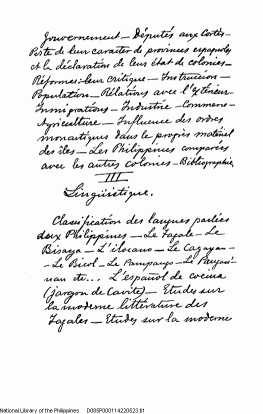 Gouvernement — Députés aux Cortès —
Perte de leur caractère de provinces espagnoles
et la déclaration de leur état de colonies —
Réformes: leur critique — Instruccion —
Population — Relations avec l'Extérieur
Immigrations — Industrie — Commerce —
Agriculture — Influence des ordres
monastiques dans le progrès matériel
des îles — Les Philippines comparées
avec les autres colonies — Bibliographie
III
Lingüistique.
Classification des langues parlées
aux Philippines — Le Tagale — Le
Bisaya — L'ilocano — Le Cagayan —
— Le Bicol — Le Pampango — Le Pangasi-
nan etc... L'español de cocina
(jargon de Cavite) — Etudes sur
la moderne littérature des
Tagales — Etudes sur la moderne
National Library of the Philippines D00SP000114220523.tif